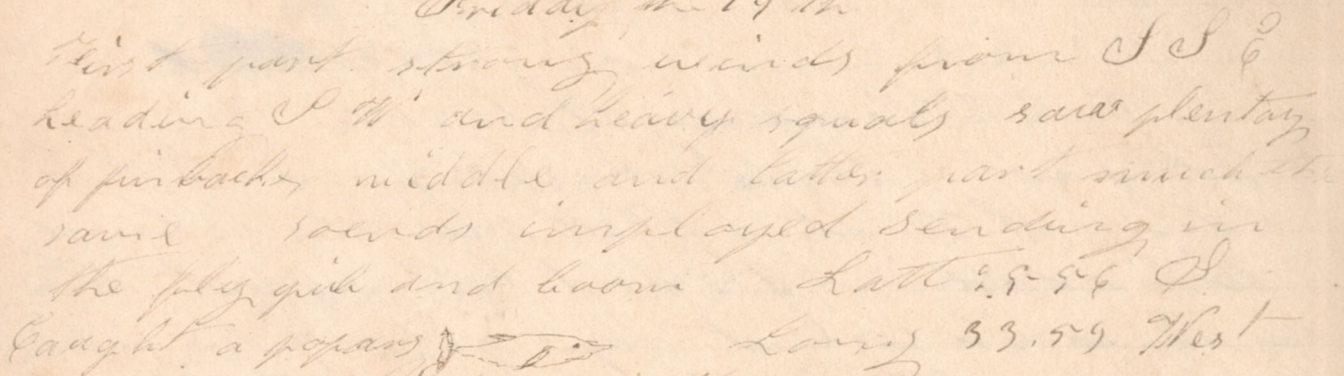 Friday the 19 th
First part strong winds from S S E
heading S W and heavy squals saw plentay
of finbacks middle and latter part much the
same imployed sending in
the flig gib and boom Latt S
Caught a Long 33.59 West